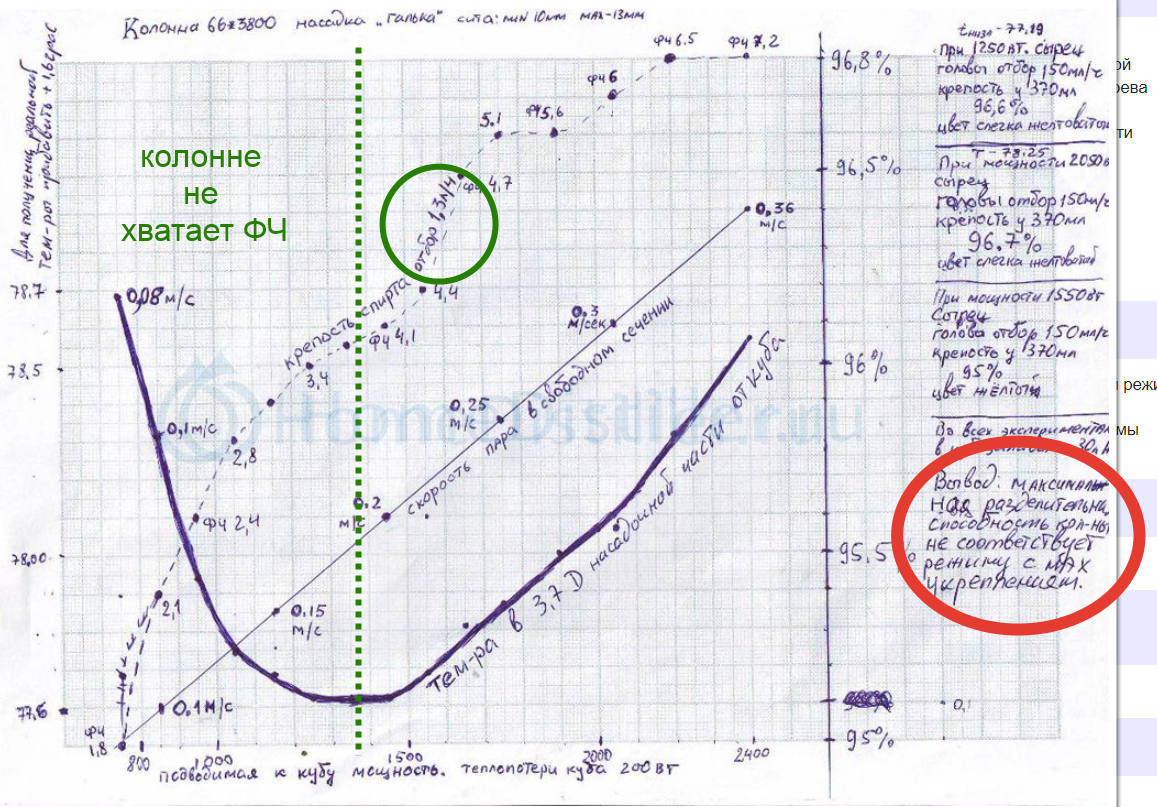 Колонна 66×3800 насадка „галька" сита: min 10мм max-13мм
Для получения реальной
тем-рой прибавить + 1,6град
колонне
не
хватает ФЧ
ФЧ 6.5
ФЧ 7,2
ФЧ 6
5.1
ФЧ 5,6
ФЧ 4,7
отбор 1,3л/ч
4,4
крепость спирта
ФЧ 4,1
3,4
2,8
ФЧ 2,4
2,1
ФЧ
1,8
96,8%
96,5%
96%
95,5%
95%
0,1
78.7
78,5
78,00
77.6
0,08 м/с
0,1 м/с
0,36
м/с
0.3
м/сек
0,25
м/с
0.2
м/с
0,15
м/с
0.1 м/с
скорость пара в свободном сечении
Тем-ра в 3,7 D насадочной части от куба
HomeDistiller.ru
800
1000
1500
2000
2400
подводимая к кубу мощность. теплопотери куба 200 вт
tниза - 77.19
При 1250 вт. сырец
головы отбор 150мл/ч
крепость у 370мл
96,6%
цвет слегка желтоватый
T - 78.25
При мощности 2050в
сырец
головы отбор 150мл/ч
крепость у 370мл
96.7%
цвет слегка желтоватой
При мощности 1550вт
Сырец
голова отбор 150мл/ч
крепость у 370мл
95%
цвет жёлтый
Во всех эксперимента
30л
Вывод: максималь
ная разделительна
способность кол-ны
не соответствует
режиму с max
укреплением.
ой
рева
ти
режи
мы